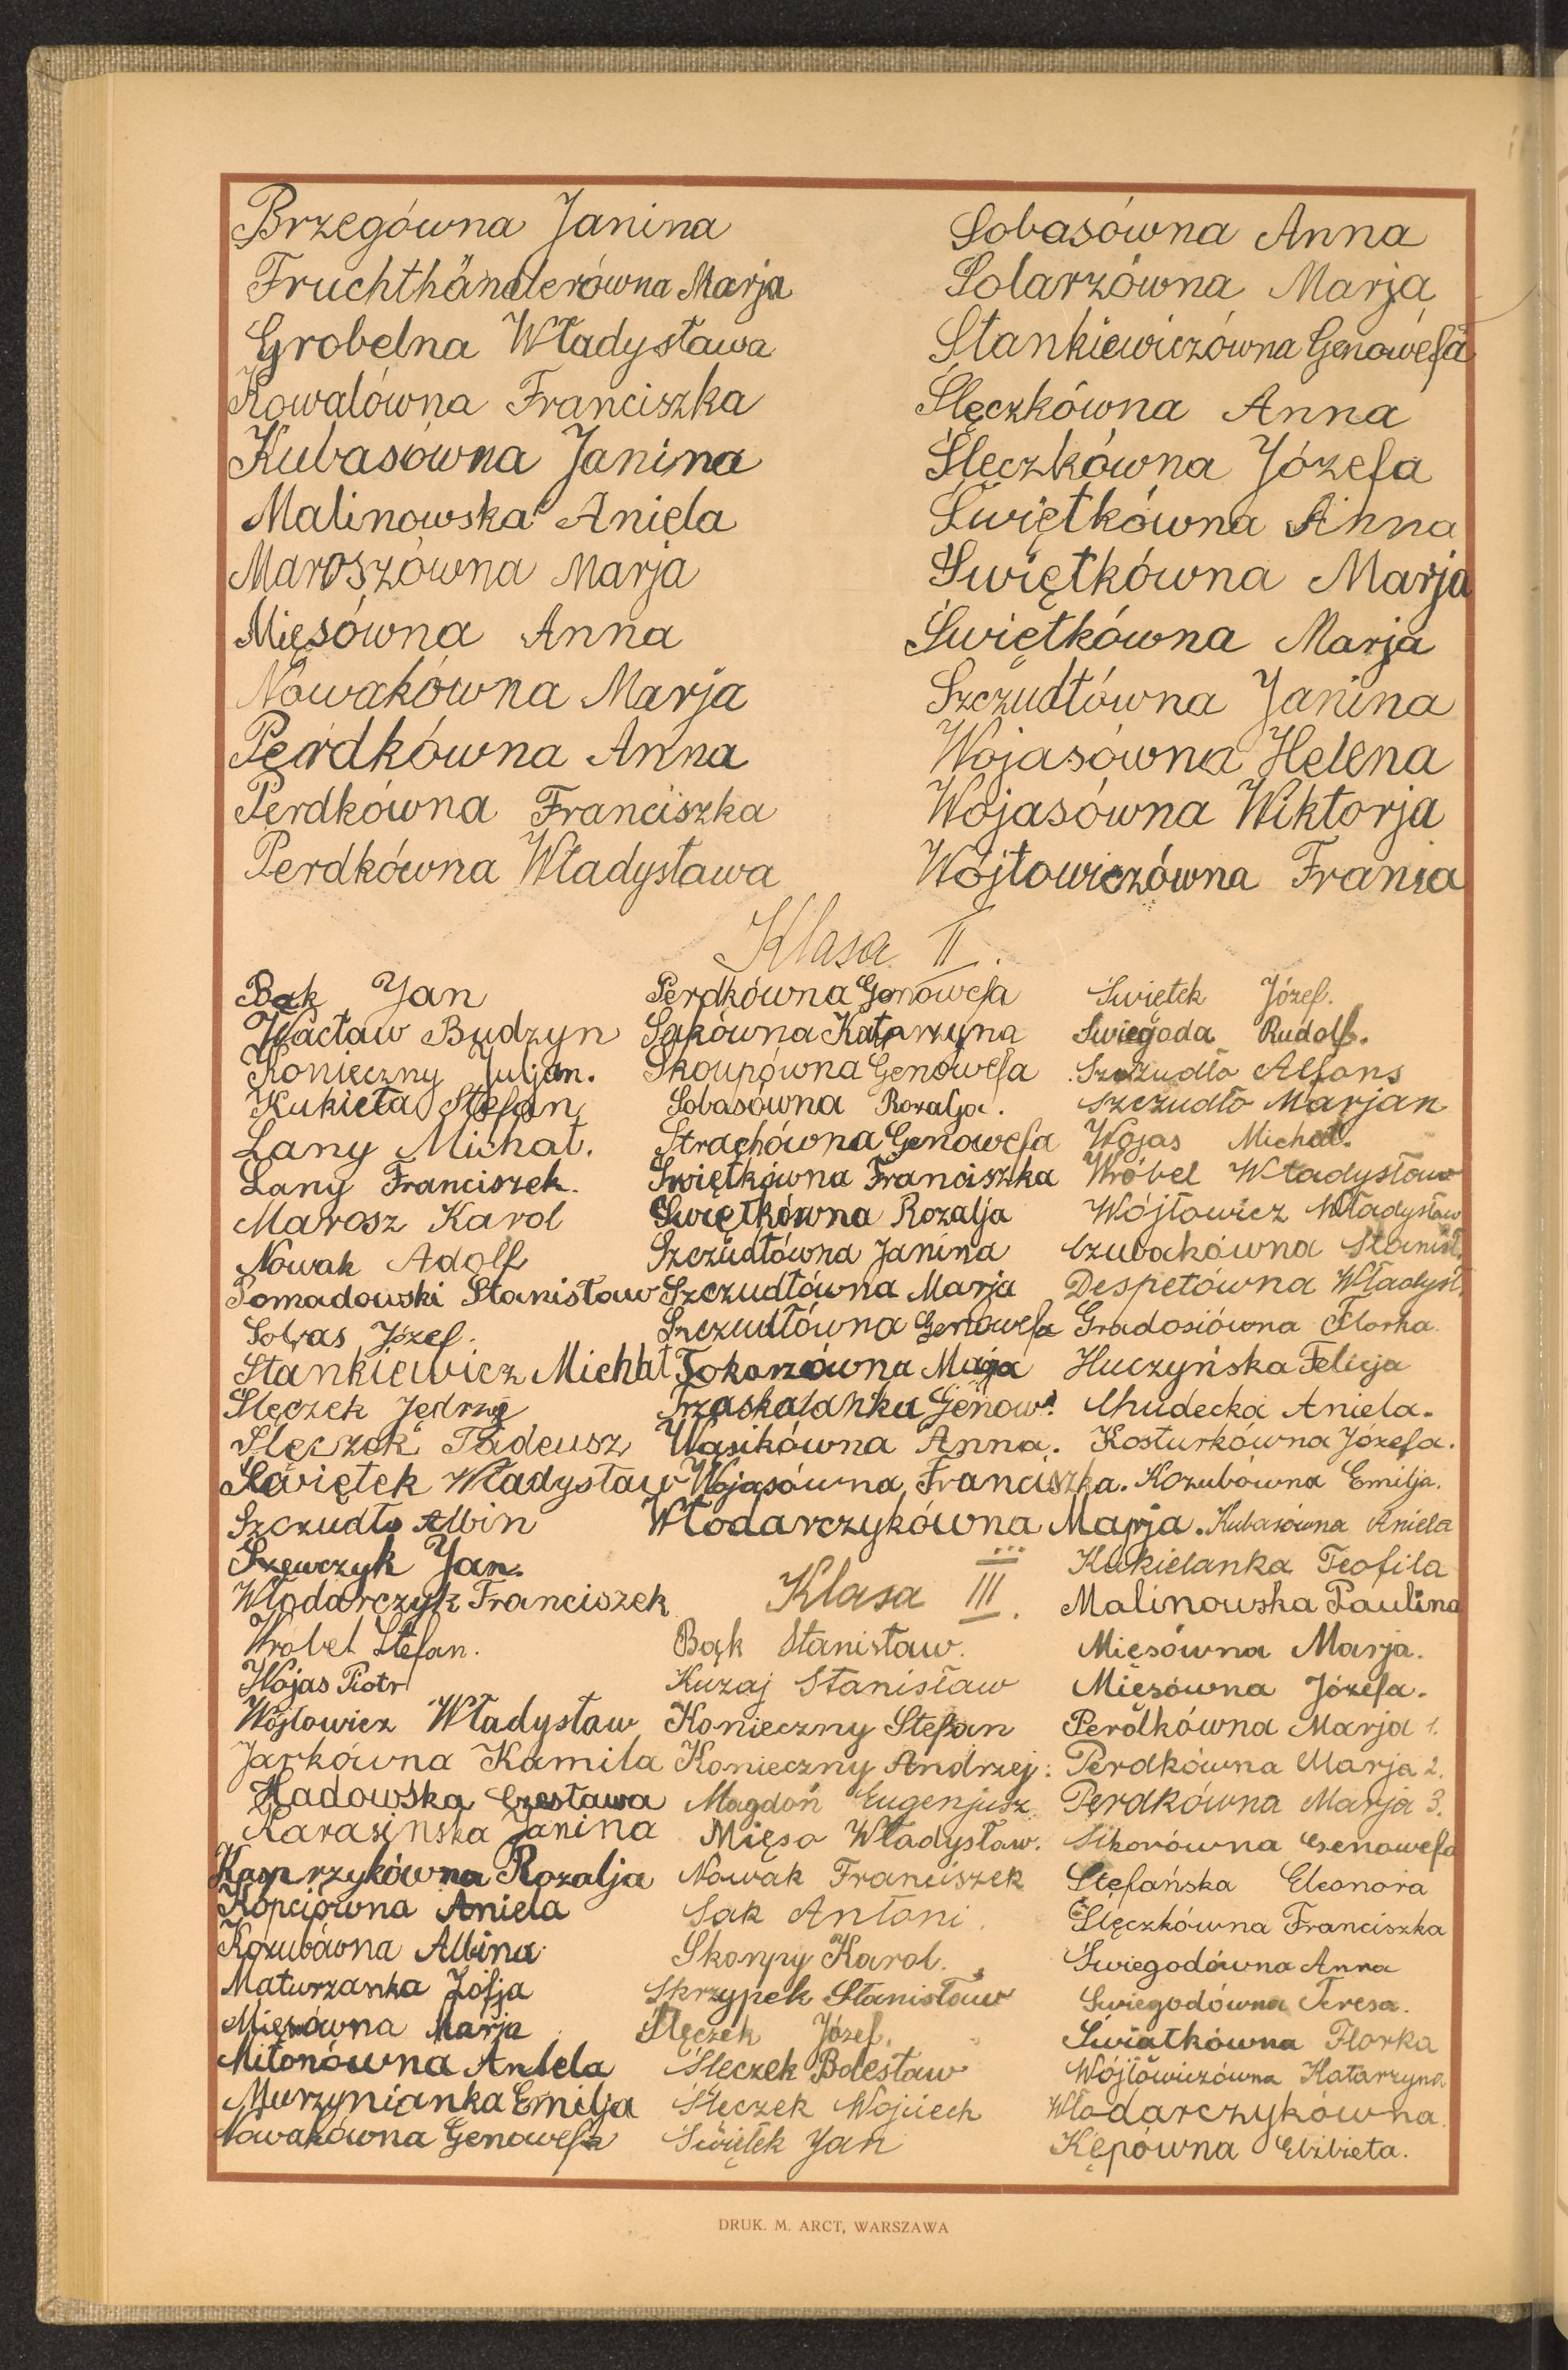 Brzegówna Janina
Fruchthändlerówna Marja
Grobelna Władysława
Kowalówna Franciszka
Kubasówna Janina
Malinowska Aniela
Maroszówna Marja
Mięsówna Anna
Nowakówna Marja
Perdkówna Anna
Perdkówna Franciszka
Perdkówna Władysława
Sobasówna Anna
Solarzówna Marja
Stankiewiczówna Genowefa
Ślęczkówna Anna
Ślęczkówna Józefa
Świętkówna Anna
Świętkówna Marja
Świętkówna Marja
Szczudłówna Janina
Wojasówna Helena
Wojasówna Wiktorja
Wójtowiczówna Frania
Klasa II.
Bąk Jan
Wacław Budzyn
Konieczny Juljan.
Kukieła Stefan
Lany Michał.
Lany Franciszek.
Marosz Karol
Nowak Adolf
Pomadowski Stanisław
Sobas Józef.
Stankiewicz Michał
Ślęczek Jędrzej
Ślęczek Tadeusz
Świętek Władysław
Szczudło Albin
Szewczyk Jan.
Włodarczyk Franciszek
Wróbel Stefan.
Wojas Piotr
Wójtowicz Władysław
Jarkówna Kamila
Hadowska Czesława
Karasińska Janina
Kasprzykówna Rozalja
Kopciówna Aniela
Kozubówna Albina
Maturzanka Zofja
Mięsówna Marja
Mitonówna Aniela
Murzynianka Emilja
Nowakówna Genowefa
Perdkówna Genowefa
Sakówna Katarzyna
Skoupówna Genowefa
Sobasówna Rozalja.
Strachówna Genowefa
Świętkówna Franciszka
Świętkówna Rozalja
Szczudłówna Janina
Szczudłówna Marja
Szczudłówna Genowefa
Tokarzówna Marja
Trzaskalanka Genow.
Wąsikówna Anna.
Wojasówna Franciszka.
Włodarczykówna Marja.
Klasa III.
Bąk Stanisław.
Kuzaj Stanisław
Konieczny Stefan
Konieczny Andrzej.
Magdoń Eugenjusz
Mięso Władysław.
Nowak Franciszek
Sak Antoni.
Skoupy Karol.
Skrzypek Stanisław
Ślęczek Józef.
Ślęczek Bolesław
Ślęczek Wojciech
Świętek Jan
Świętek Józef.
Świegoda Rudolf.
Szczudło Alfons
Szczudło Marjan
Wojas Michał.
Wróbel Władysław
Wójtowicz Władysław
Czubakówna Stanisł.
Despetówna Władysł.
Gradosiówna Florka.
Huczyńska Felicja
Chudecka Aniela.
Kosturkówna Józefa.
Kozubówna Emilja.
Kubasówna Aniela
Kukielanka Teofila
Malinowska Paulina
Mięsówna Marja.
Mięsówna Józefa.
Perdkówna Marja 1.
Perdkówna Marja 2.
Perdkówna Marja 3.
Sikorówna Genowefa
Stefańska Eleonora
Ślęczkówna Franciszka
Świegodówna Anna
Świegodówna Teresa.
Świątkówna Florka
Wójtowiczówna Katarzyna
Włodarczykówna.
Kępówna Elżbieta.
DRUK. M. ARCT, WARSZAWA